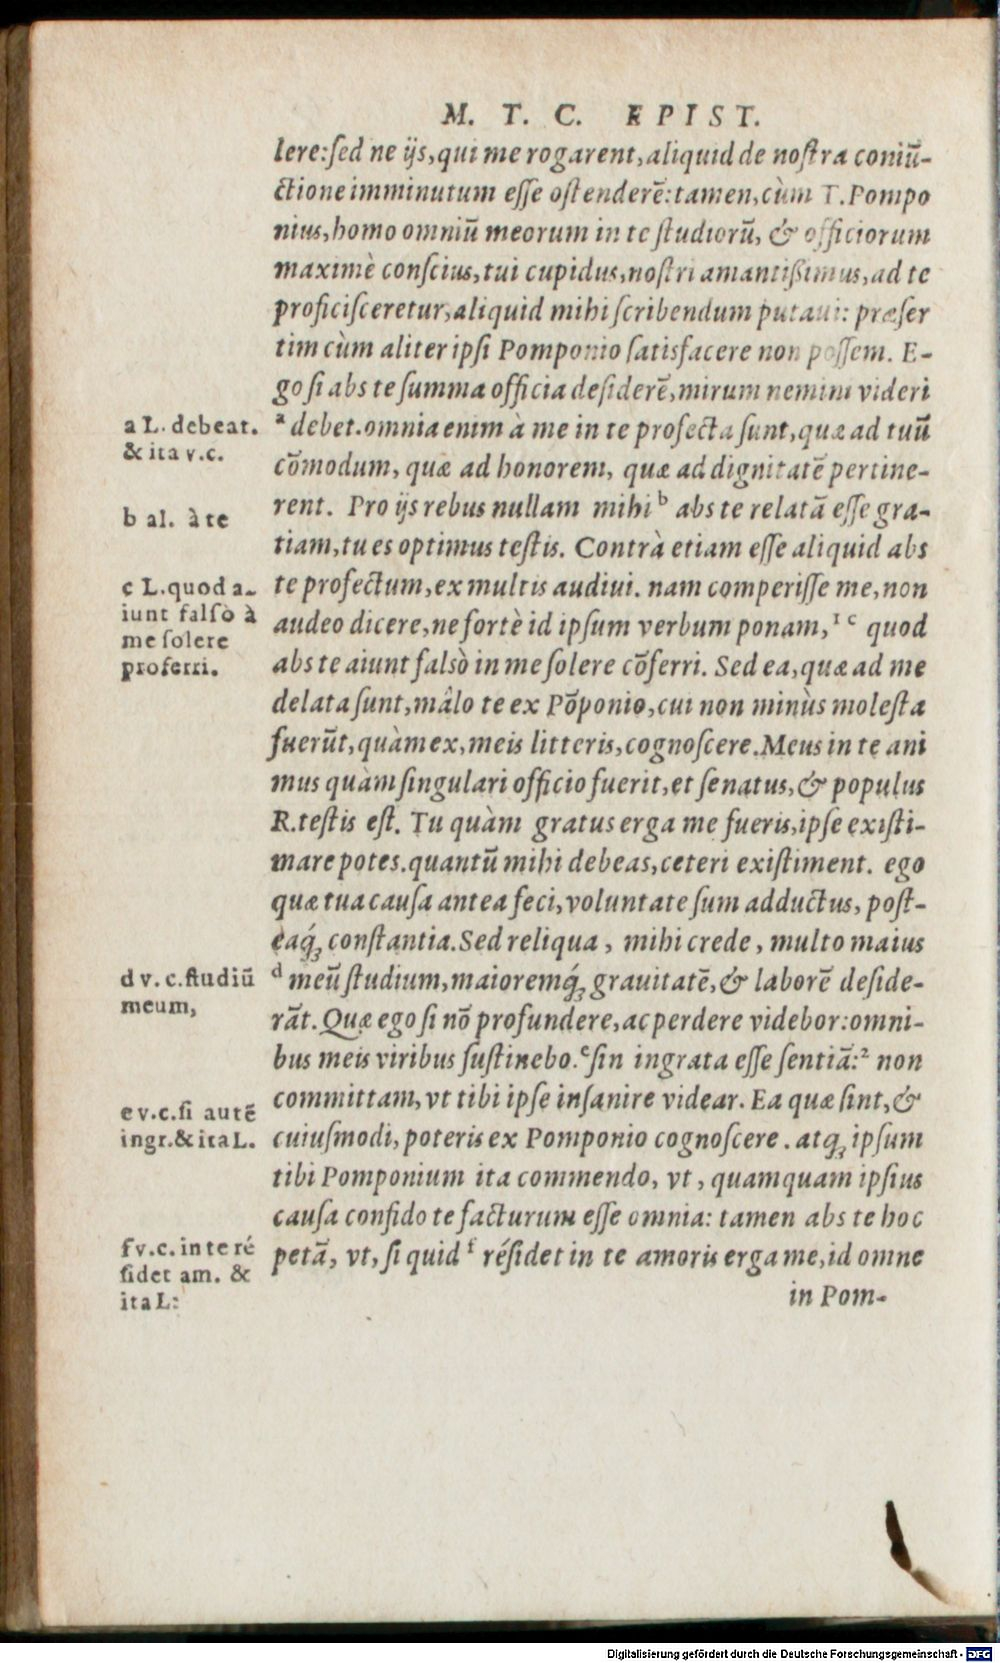 M. T. C. EPIST.
lere:ſed ne ijs,qui me rogarent,aliquid de noſtra coniũ-
ctione imminutum eſſe oſtenderẽ:tamen,cùm T.Pompo
nius,homo omniũ meorum in te ſtudiorũ, & officiorum
maximè conſcius,tui cupidus,noſtri amantißimus,ad te
proficiſceretur,aliquid mihi ſcribendum putaui: præſer
tim cùm aliter ipſi Pomponio ſatisfacere non poſſem. E-
go ſi abs te ſumma officia deſiderẽ,mirum nemini videri
a L. debeat.
& ita v.c.
ᵃ debet.omnia enim à me in te profecta ſunt,quæ ad tuũ
cõmodum, quæ ad honorem, quæ ad dignitatẽ pertine-
b al. à te
rent. Pro ijs rebus nullam mihi ᵇ abs te relatã eſſe gra-
tiam,tu es optimus teſtis. Contrà etiam eſſe aliquid abs
c L.quod a-
iunt falſò à
me ſolere
proferri.
te profectum,ex multis audiui. nam comperiſſe me,non
audeo dicere,ne fortè id ipſum verbum ponam,¹ ᶜ quod
abs te aiunt falsò in me ſolere cõferri. Sed ea,quæ ad me
delata ſunt,mâlo te ex Põponio,cui non minùs moleſta
fuerũt,quàm ex,meis litteris,cognoſcere.Meus in te ani
mus quàm ſingulari officio fuerit,et ſenatus,& populus
R.teſtis eſt. Tu quàm gratus erga me fueris,ipſe exiſti-
mare potes.quantũ mihi debeas,ceteri exiſtiment. ego
quæ tua cauſa antea feci,voluntate ſum adductus, poſt-
eaq́ꝫ conſtantia.Sed reliqua, mihi crede, multo maius
d v. c.ſtudiũ
meum,
ᵈ meũ ſtudium,maioremq́ꝫ grauitatẽ,& laborẽ deſide-
rãt.Quæ ego ſi nõ profundere,ac perdere videbor:omni-
bus meis viribus ſuſtinebo.ᵉſin ingrata eſſe ſentiã:² non
committam,vt tibi ipſe inſanire videar. Ea quæ ſint,&
e v.c.ſi autẽ
ingr.& ita L.
cuiuſmodi,poteris ex Pomponio cognoſcere. atqꝫ ipſum
tibi Pomponium ita commendo, vt, quamquam ipſius
cauſa confido te facturum eſſe omnia: tamen abs te hoc
f v.c. in te ré
ſidet am. &
ita L:
petã, vt, ſi quid ᶠ réſidet in te amoris erga me,id omne
in Pom-
Digitalisierung gefördert durch die Deutsche Forschungsgemeinschaft - DFG